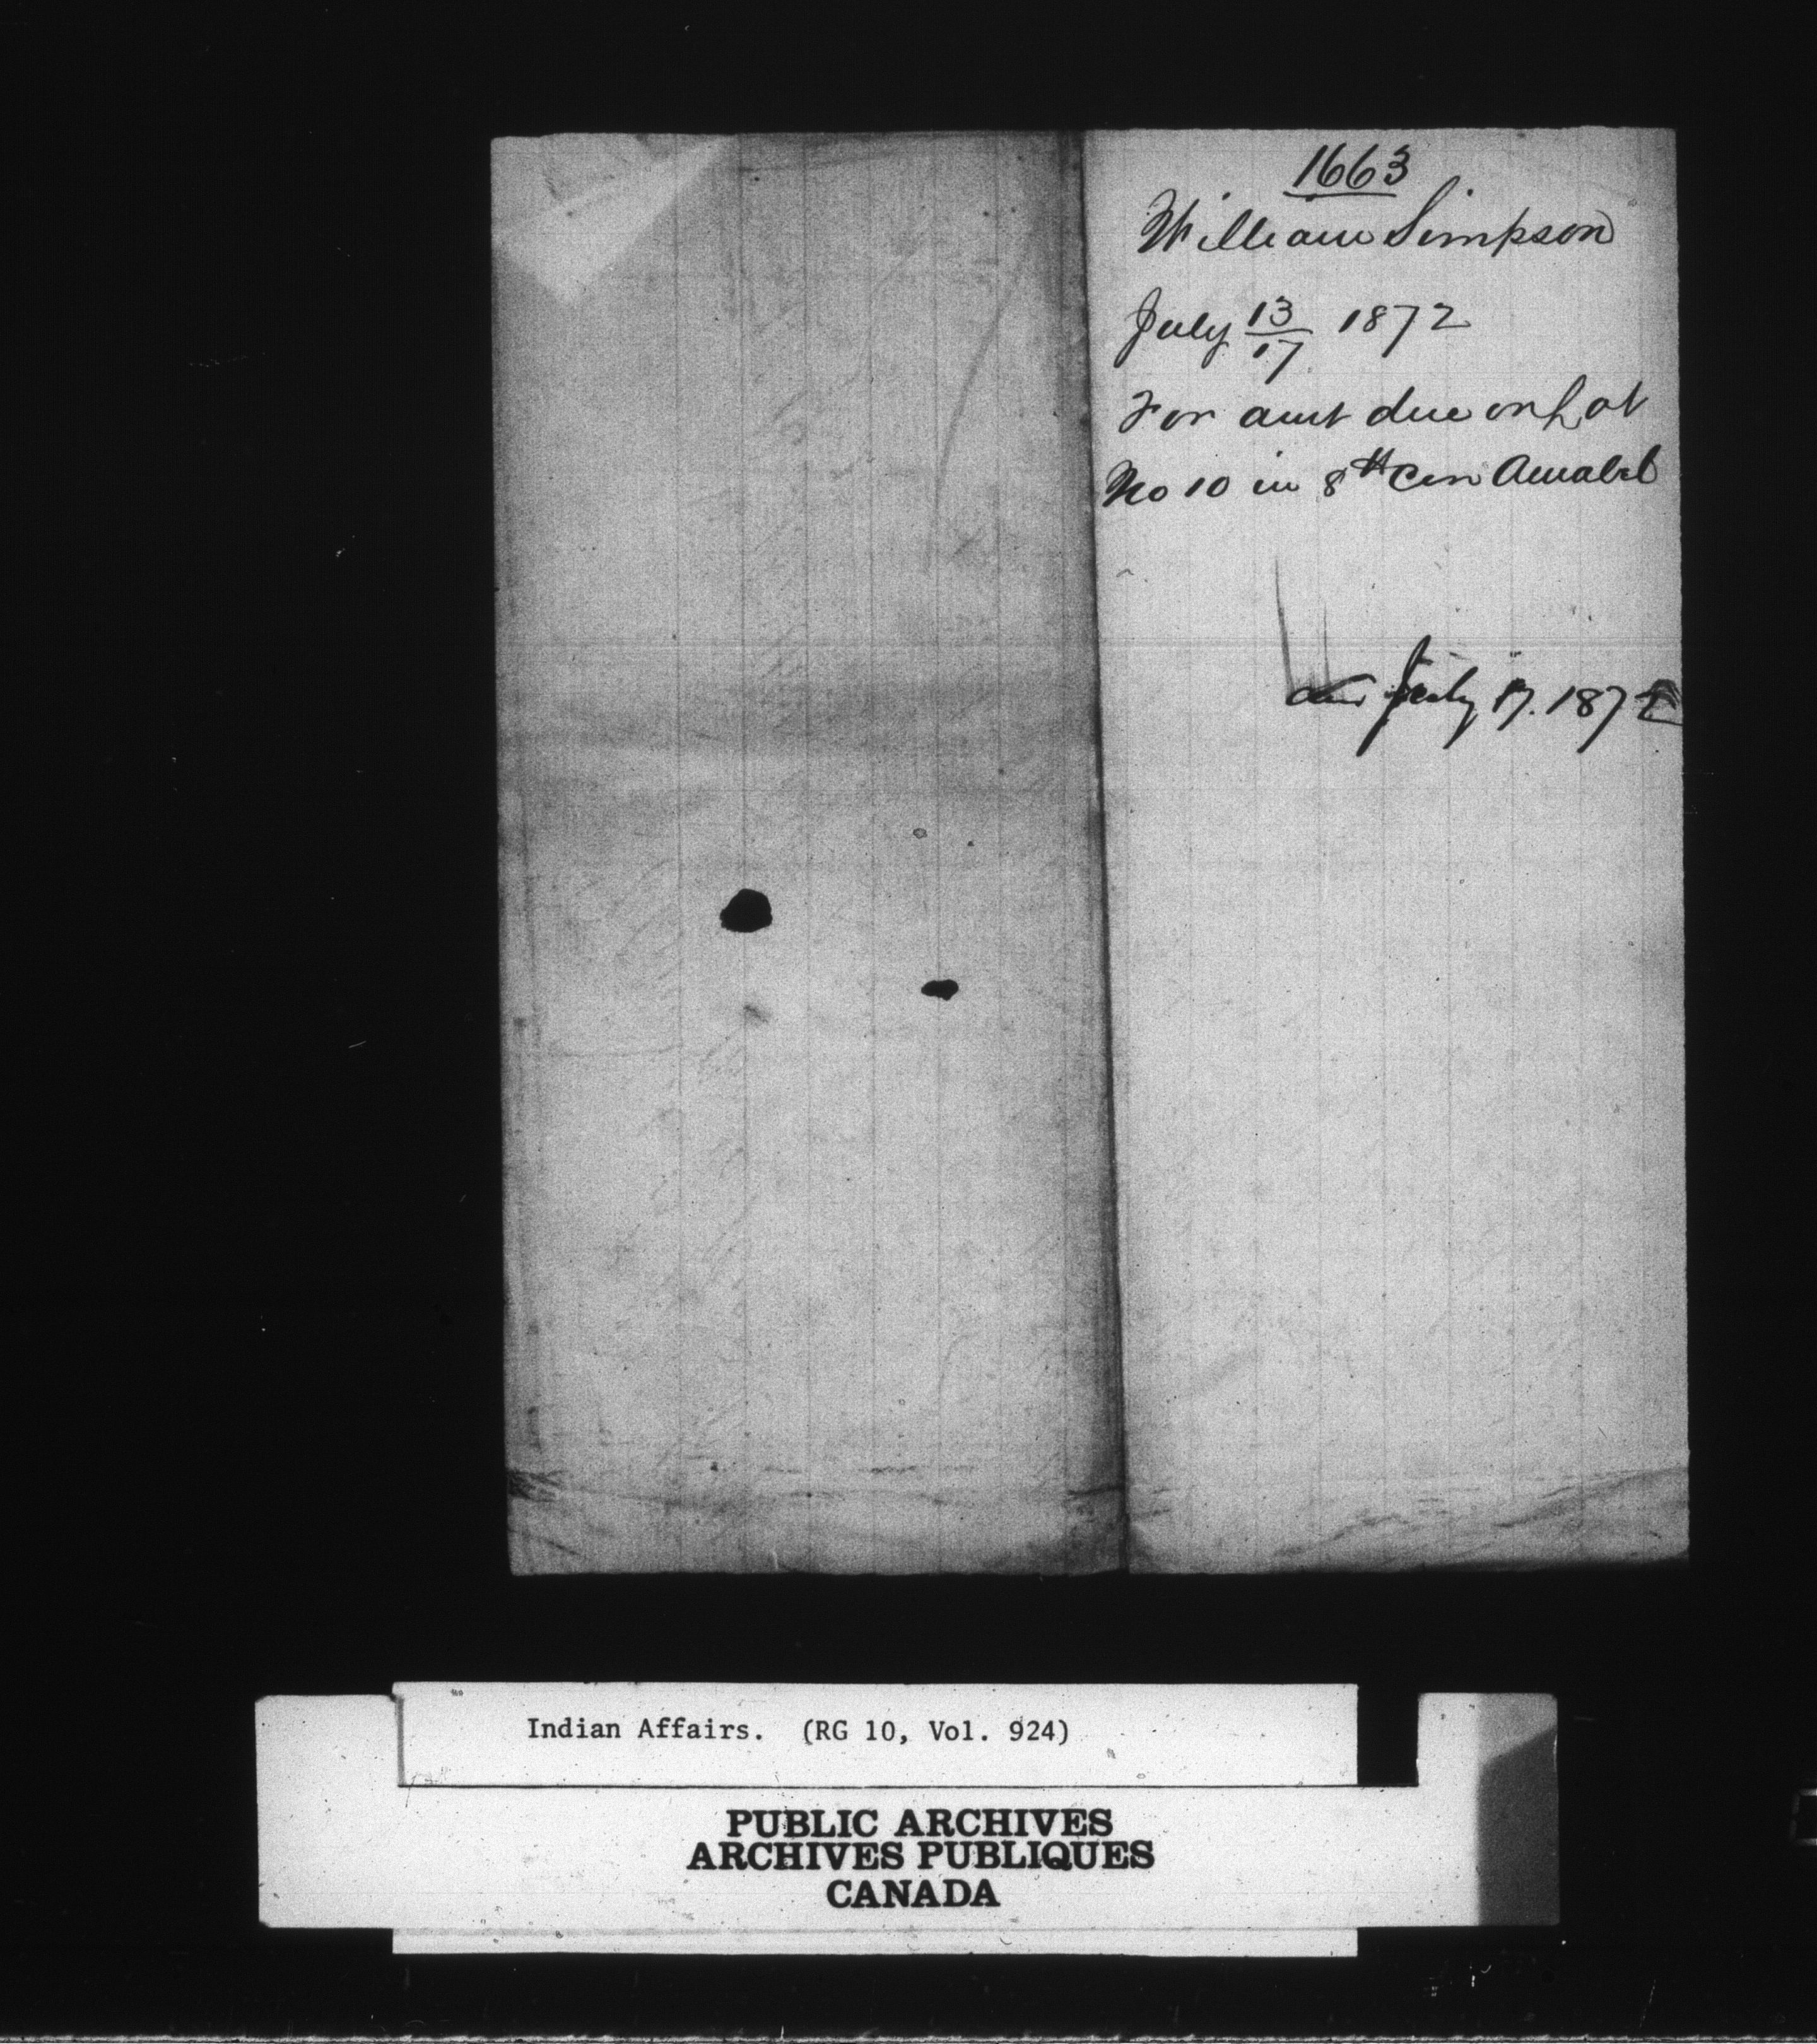 1663
William Simpson
July 13/17 1872
For amt due on Lot
No 10 in 8th Con Amabel
Ans July 17. 1872
Indian Affairs. (RG 10, Vol. 924)
PUBLIC ARCHIVES
ARCHIVES PUBLIQUES
CANADA